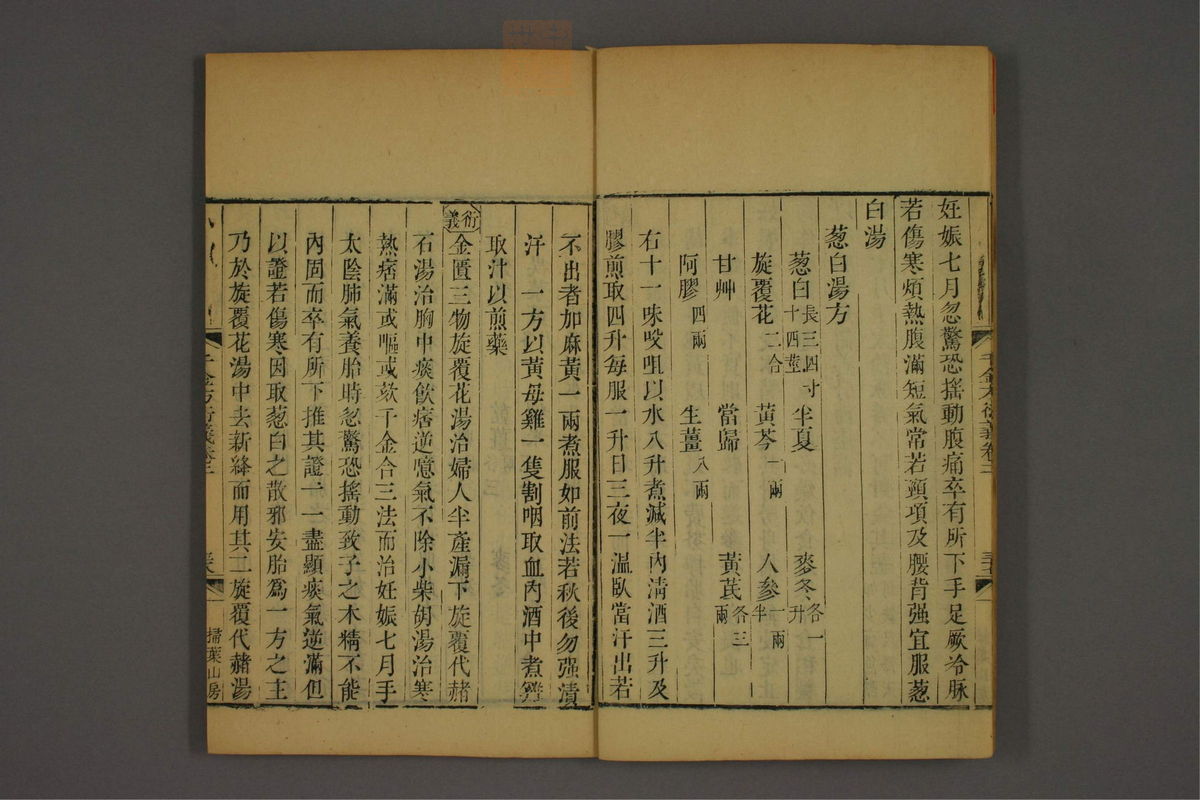 妊娠七月忽驚恐搖動腹痛卒有所下手足厥冷脉
若傷寒煩熱腹滿短氣常若頸項及腰背强宜服葱
白湯
葱白湯方
葱白長三四寸十四莖 半夏 麥冬各一升
旋覆花二合 黃芩一兩 人參一兩半
甘艸 當歸 黃芪各三兩
阿膠四兩 生薑八兩
右十一味㕮咀以水八升煮減半內淸酒三升及
膠煎取四升每服一升日三夜一溫臥當汗出若
不出者加麻黃一兩煮服如前法若秋後勿强漬
汗 一方以黃母雞一隻割咽取血內酒中煮雞
取汁以煎藥
衍義 金匱三物旋覆花湯治婦人半產漏下旋覆代赭
石湯治胸中痰飲痞逆噫氣不除小柴胡湯治寒
熱痞滿或嘔或欬千金合三法而治妊娠七月手
太陰肺氣養胎時忽驚恐搖動致子之木精不能
內固而卒有所下推其證一一盡顯痰氣逆滿但
以證若傷寒因取葱白之散邪安胎爲一方之主
乃於旋覆花湯中去新絳而用其二旋覆代赭湯
千金方衍義卷二
掃葉山房